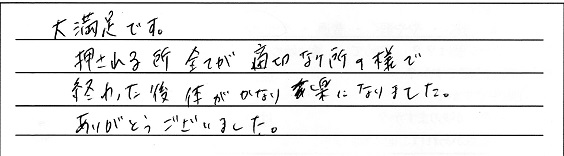 大満足です。
押される所全てが適切な所の様で
終わった後体がかなり楽になりました。
ありがとうございました。